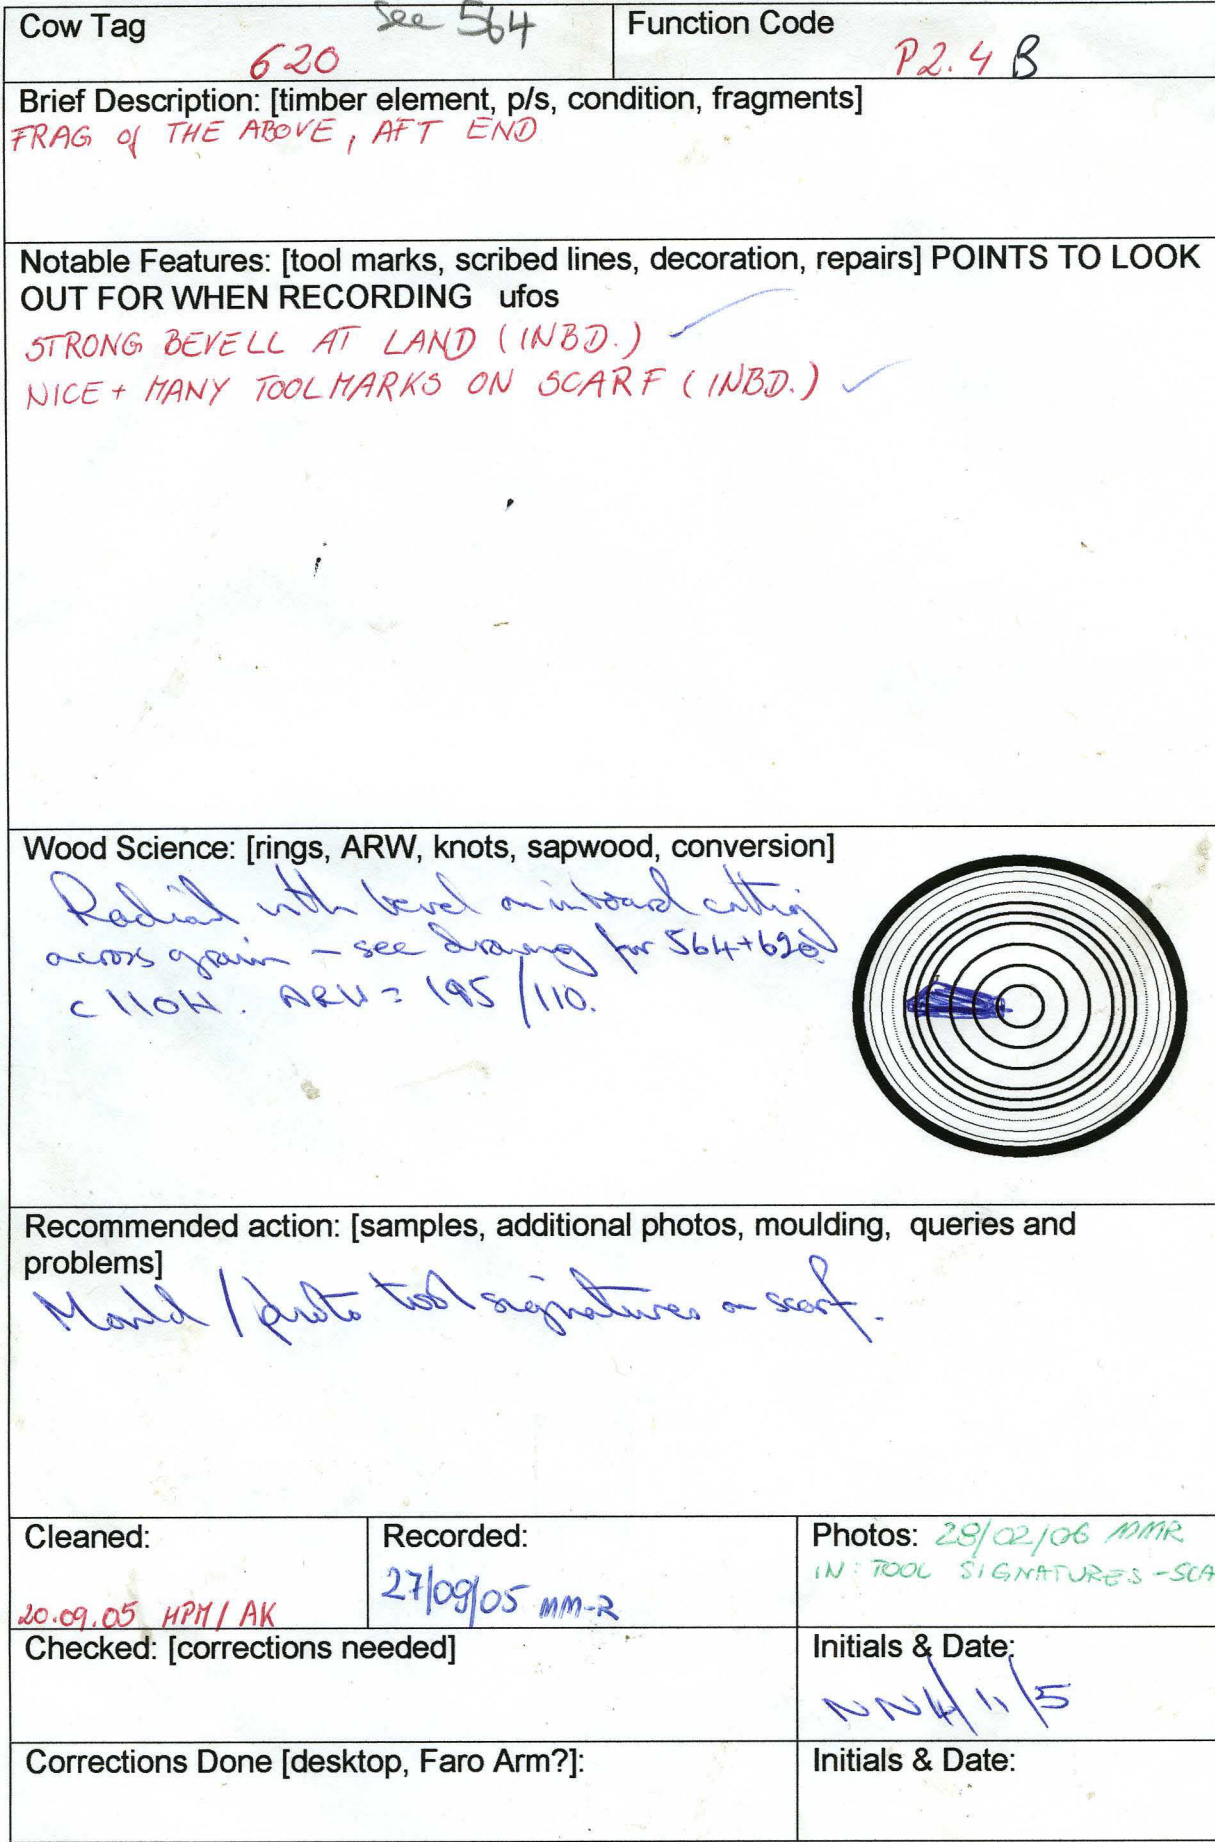 Cow Tag see 564
620
Function Code
P2.4 B
Brief Description: [timber element, p/s, condition, fragments]
FRAG of THE ABOVE, AFT END
Notable Features: [tool marks, scribed lines, decoration, repairs] POINTS TO LOOK
OUT FOR WHEN RECORDING ufos
STRONG BEVELL AT LAND (INBD.) ✓
NICE + MANY TOOLMARKS ON SCARF (INBD.) ✓
Wood Science: [rings, ARW, knots, sapwood, conversion]
Radial with bevel on inboard cutting
across grain – see drawing for 564+620
c 110H. ARW = 195/110.
Recommended action: [samples, additional photos, moulding, queries and
problems]
Mould / photo tool signatures on scarf.
Cleaned:
20.09.05 HPM/ AK
Recorded:
27/09/05 MM-R
Photos: 28/02/06 MMR
IN: TOOL SIGNATURES - SCA
Checked: [corrections needed]
Initials & Date:
NN4/11/5
Corrections Done [desktop, Faro Arm?]:
Initials & Date: